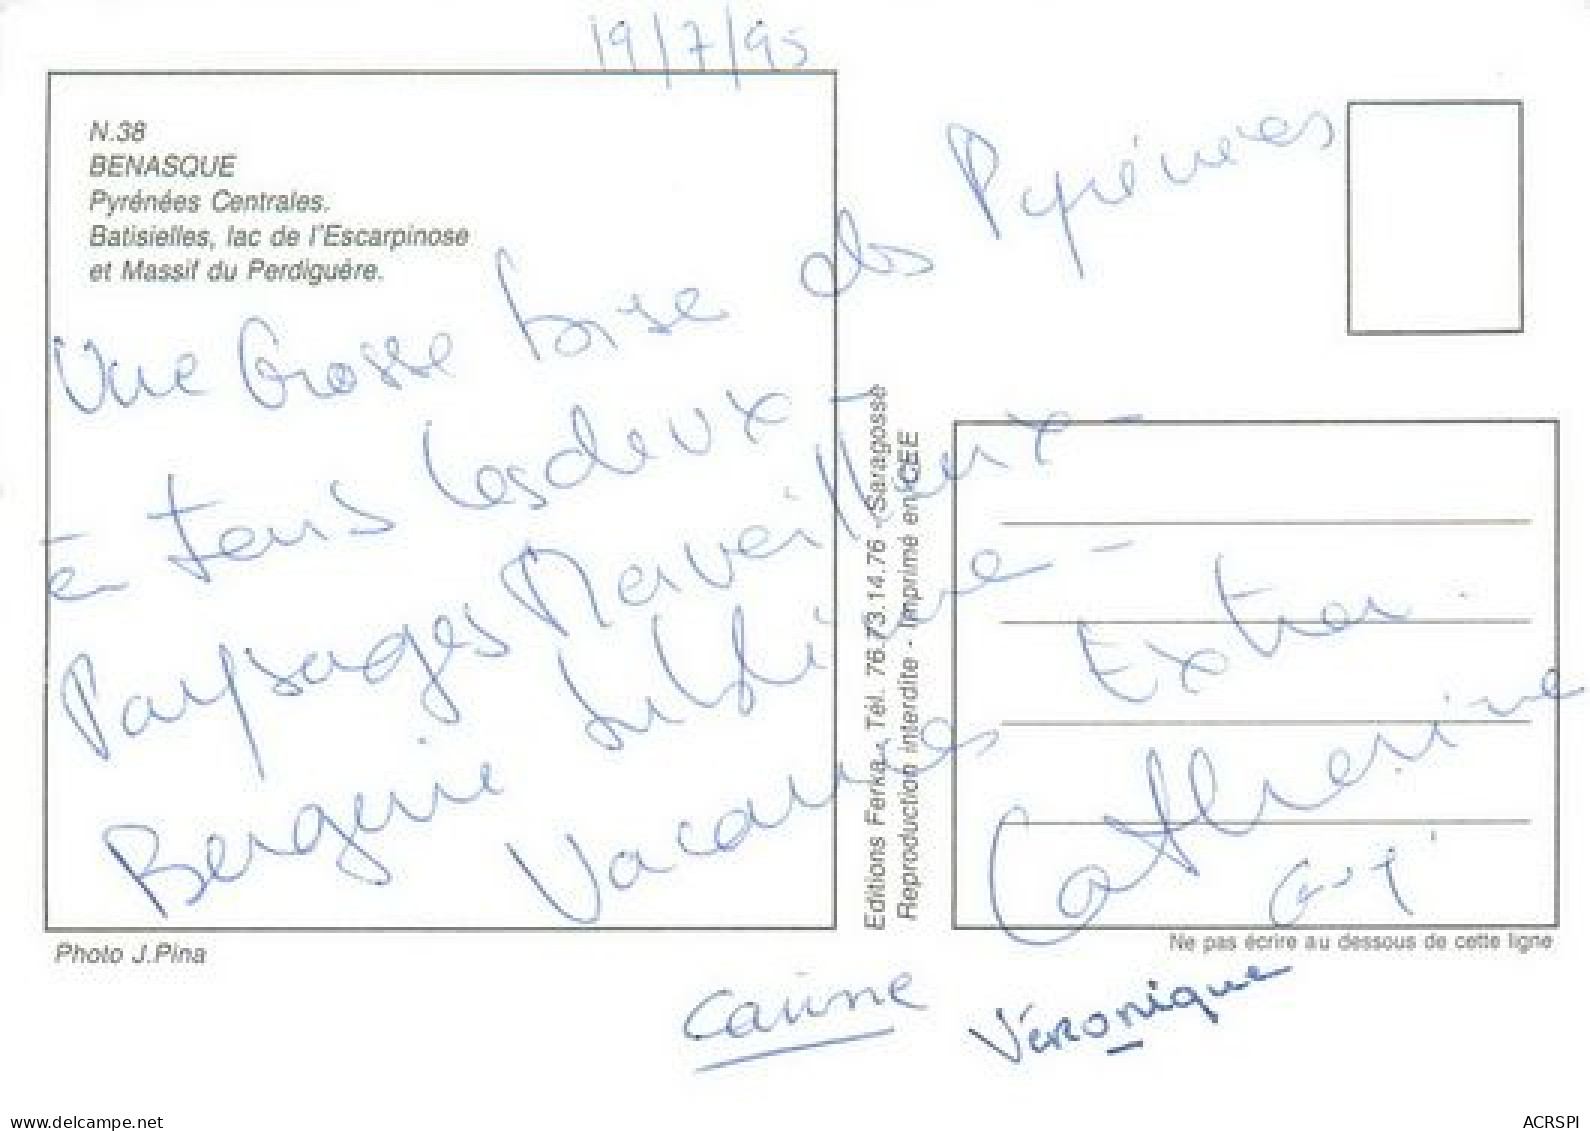 19/7/95
N.38
BENASQUE
Pyrénées Centrales.
Batisielles, lac de l'Escarpinose
et Massif du Perdiguère.
Une Grosse bise des Pyrénées
à tous les deux -
Paysages Merveilleux -
Bergerie sublime -
Vacances Extra.
Catherine
Guy
Carine
Véronique
Editions Ferka. Tél. 76.73.14.76 - Saragosse
Reproduction interdite - Imprimé en CEE
Ne pas écrire au dessous de cette ligne
Photo J.Pina
delcampe.net
ACRSPI